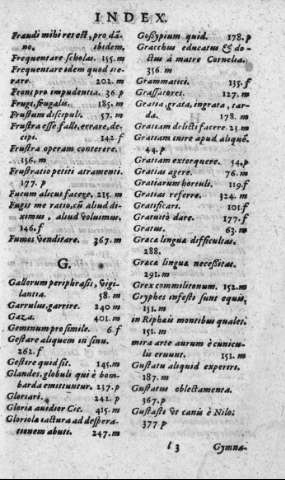 INDEX.
Fraudi mihi res est, pro dã-
no, ibidem,
Frequentare scholas. 155.m
Frequentare idem quod ite-
rare. 202.m
Frons pro impudentia. 36.p
Frugi, frugalis. 185.m
Frustum discipuli. 57.m
Frustra esse, falli, errare, de-
cipi. 142.f
Frustra operam conterere.
156.m
Frustratio petiti atramenti.
177.p
Fucum alicui facere. 215.m
Fugit me ratio, cũ aliud di-
ximus, aliud voluimus.
146.f
Fumos venditare. 367.m
G.
Gallorum periphrasis, vigi-
lantia. 58.m
Garrulus, garrire. 240 m
Gaza. 401.m
Geminum pro simile. 6.f
Gestare aliquem in sinu.
262.f
Gestire quid sit. 145.m
Glandes, globuli qui è bom-
barda emittuntur. 237.p
Gloriari. 242.p
Gloria auidior Cic. 415.m
Gloriola iactura ad despera-
tionem abuti. 247.m
Gossypium quid. 178.p
Gracchus educatus & do-
ctus à matre Cornelia.
356.m
Grammatici. 155.f
Grassatores. 127.m
Gratia grata, ingrata, tar-
da. 178.m
Gratiam delicti facere. 23.m
Gratiam inire apud aliquẽ.
44.p
Gratiam extorquere. 54.p
Gratias agere. 76.m
Gratiarum hortuli. 119.f
Gratias referre. 324.m
Gratificari. 101.f
Gratuitò dare. 177.f
Gratus. 63.m
Græca lingua difficultas.
288.
Græca lingua necessitas.
291.m
Grex commilitonum. 152.m
Gryphes infesti sunt equis,
151.m
in Riphæis montibus quales.
151.m
mira arte aurum è cunicu-
lis eruunt. 151.m
Gustatu aliquid experire.
187.m
Gustatus oblectamenta.
367.p
Gustasti vt canis è Nilo.
377 p
l 3 Gymna-